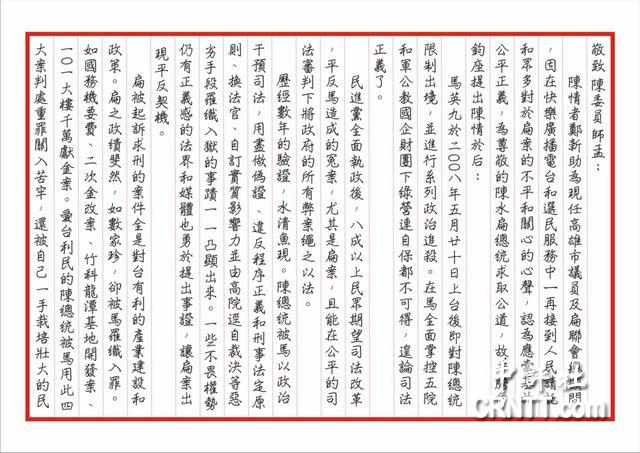 敬致 陳委員 師孟：
陳情者鄭新助為現任高雄市議員及扁聯會總顧問
，因在快樂廣播電台和選民服務中一再接到人民請託
和眾多對於扁案的不平和關心的心聲，認為應當基於
公平正義，為尊敬的陳水扁總統求取公道，故
鈞座提出陳情於后：
馬英九於二○○八年五月廿十日上台後即對陳總統
限制出境，並進行系列政治追殺。在馬全面掌控五院
和軍公教國企財團下綠營連自保都不可得，遑論司法
正義了。
民進黨全面執政後，八成以上民眾期望司法改革
，平反馬造成的冤案，尤其是扁案，且能在公平的司
法審判下將政府的所有弊案繩之以法。
歷經數年的驗證，水清魚現。陳總統被馬以政治
干預司法，用盡做偽證、違反程序正義和刑事法定原
則、換法官、自訂實質影響力並由高院逕自裁決等惡
劣手段羅織入獄的事蹟一一凸顯出來。一些不畏權勢
仍有正義感的法界和媒體也勇於提出事證，讓扁案出
現平反契機。
扁被起訴求刑的案件全是對台有利的產業建設和
政策。扁之政績斐然，如數家珍，卻被馬羅織入罪。
如國務機要費、二次金改案、竹科龍潭基地開發案、
一○一大樓千萬獻金案。愛台利民的陳總統被馬用此四
大案判處重罪關入苦牢，還被自己一手栽培壯大的民
中評社
CRNTT.com